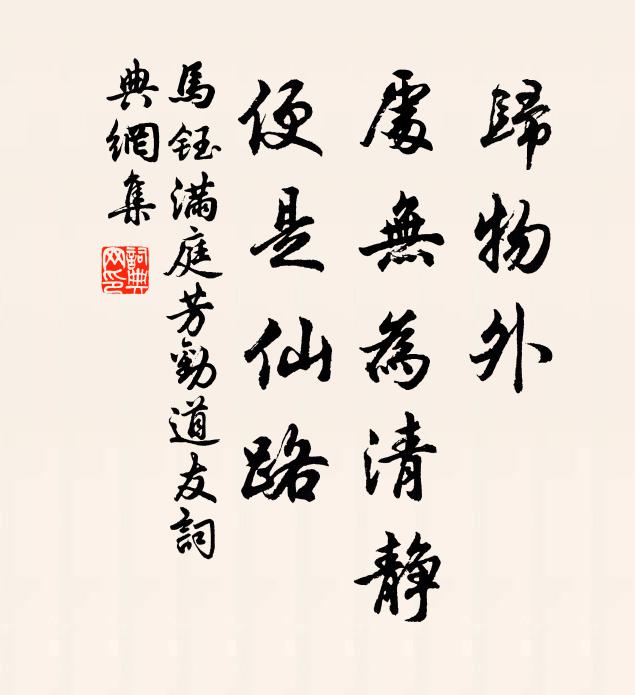 歸物外
處無為清靜
便是仙路
馬鈺滿庭芳勸道友詞
典網集
詞典
网印